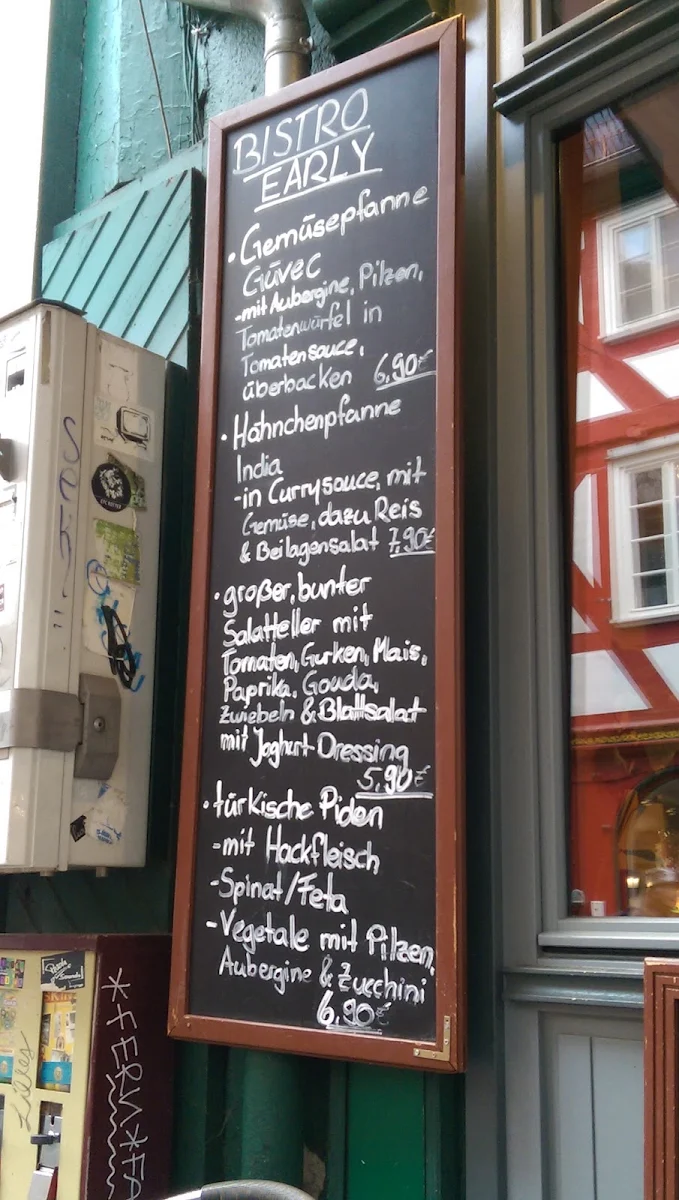 BISTRO
EARLY
• Gemüsepfanne
Güvec
-mit Aubergine, Pilzen,
Tomatenwürfel in
Tomatensauce,
überbacken 6,90€
• Hähnchenpfanne
India
-in Currysauce, mit
Gemüse, dazu Reis
& Beilagensalat 7,90€
• großer, bunter
Salatteller mit
Tomaten, Gurken, Mais,
Paprika, Gouda,
Zwiebeln & Blattsalat
mit Joghurt-Dressing
5,90€
• türkische Piden
-mit Hackfleisch
-Spinat/Feta
-Vegetale mit Pilzen,
Aubergine & Zucchini
6,90€